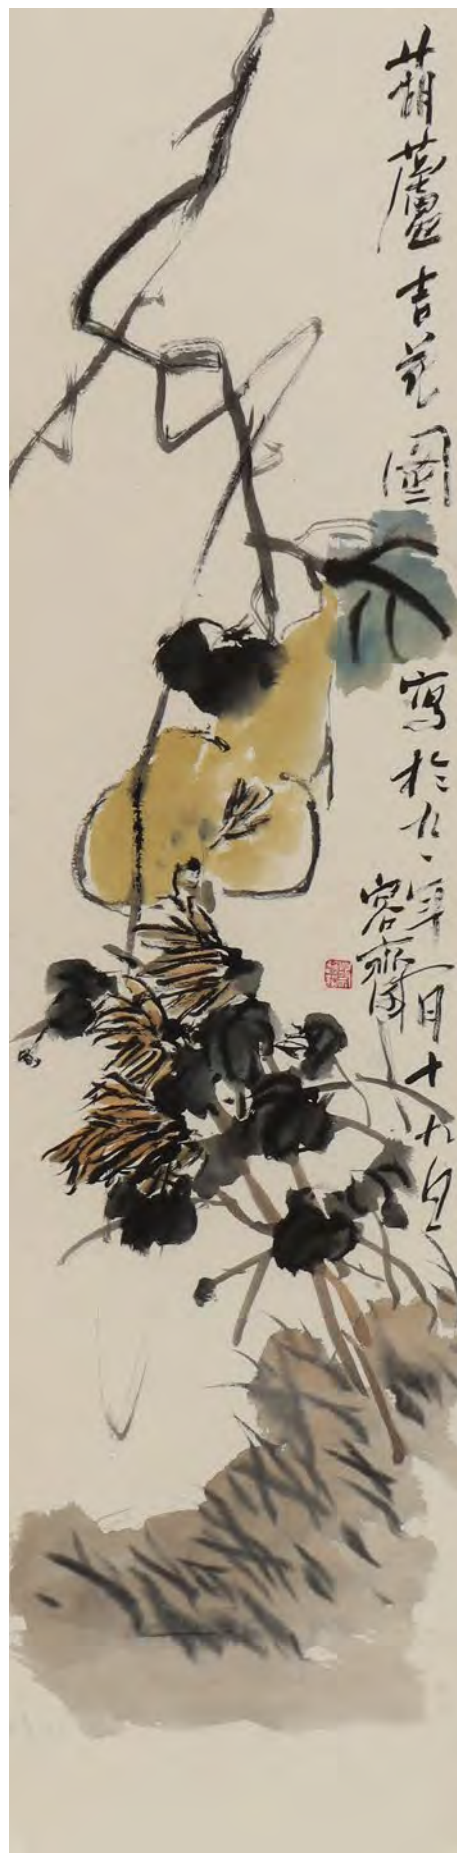 葫蘆吉圖 寫於九年一月十九日
容齋